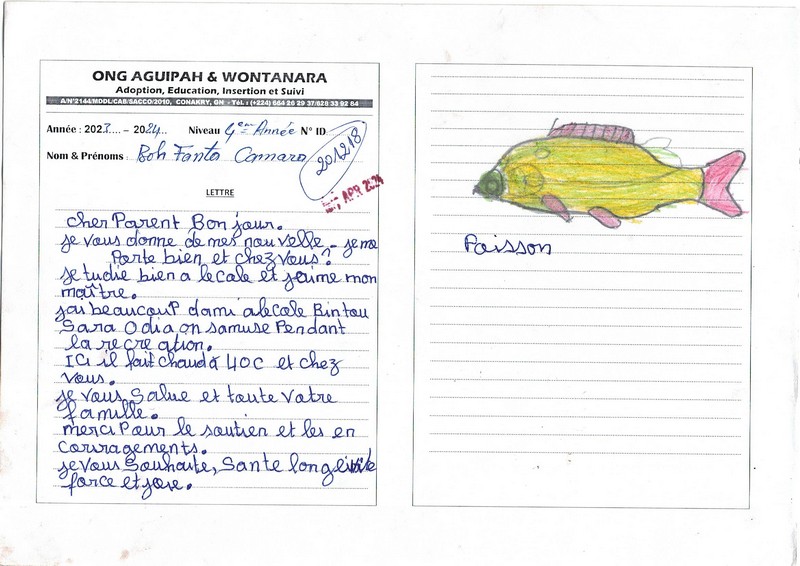 ONG AGUIPAH & WONTANARA
Adoption, Education, Insertion et Suivi
A/N°2144/MDDL/CAB/SACCO/2010, CONAKRY, GN - Tél : (+224) 664 20 29 37/628 33 92 84
Année : 2023.... - 2024.. Niveau 4em Année N° ID
201218
Nom & Prénoms : Boh Fanta Camara
APR 2024
LETTRE
cher Parent Bon jour.
je vous donne de mes nouvelle - je me
Porte bien et chez vous ?
je tudie bien a lecole et j'aime mon
maître.
jai beaucouP dami alecole Bintou
Sara Odia on samuse Pendant
la recreation.
ICi il fait chaud à 40C et chez
vous.
je vous Salue et toute votre
famille.
merci Pour le soutien et les en
couragements.
je vous Souhaite, Sante longevité
force et joie.
Poisson